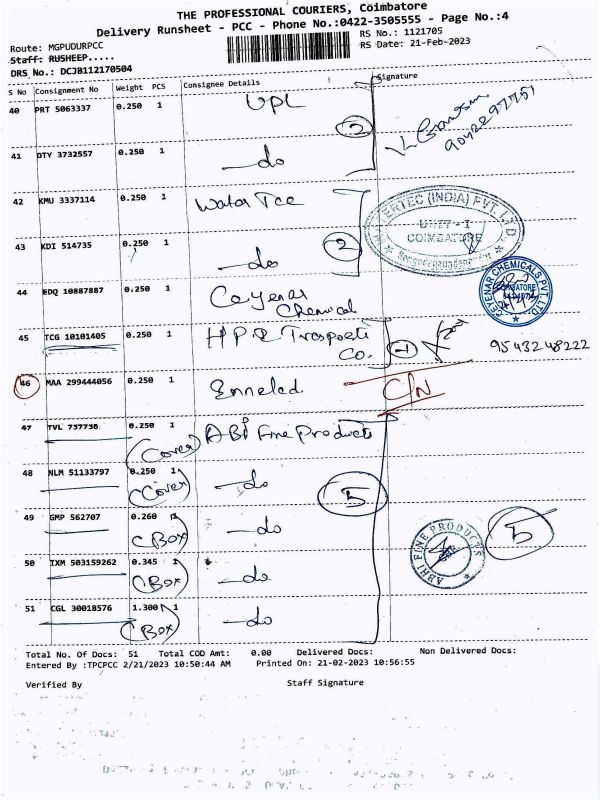 THE PROFESSIONAL COURIERS, Coimbatore
Delivery Runsheet - PCC - Phone No.:0422-3505555 - Page No.:4
Route: MGPUDURPCC RS No.: 1121705
Staff: RUSHEEP..... RS Date: 21-Feb-2023
DRS No.: DCJB112170504
S No Consignment No Weight PCS Consignee Details Signature
40 PRT 5063337 0.250 1 UPL
2
9042297751
41 DTY 3732557 0.250 1 —do
42 KMU 3337114 0.250 1 Water Tec
ERTEC (INDIA) PVT. LTD.
UNIT - I
COIMBATORE
43 KDI 514735 0.250 1 —do 2
44 EDQ 10887887 0.250 1 Ceyenar Chemical
CEYENAR CHEMICALS PVT. LTD.
COIMBATORE
45 TCG 10101405 0.250 1 HPR Trasporti Co. 1
9543248222
46 MAA 299444056 0.250 1 Enneled C/N
47 TVL 737736 0.250 1 ABI Fine Products
(Cover)
48 NLM 51133797 0.250 1 —do 5
(Cover)
49 GMP 562707 0.260 —do 5
(Box)
ABHI FINE PRODUCTS
50 IXM 503159262 0.345 1 —do
(Box)
51 CGL 30018576 1.300 1 —do
(Box)
Total No. Of Docs: 51 Total COD Amt: 0.00 Delivered Docs: Non Delivered Docs:
Entered By :TPCPCC 2/21/2023 10:50:44 AM Printed On: 21-02-2023 10:56:55
Verified By Staff Signature